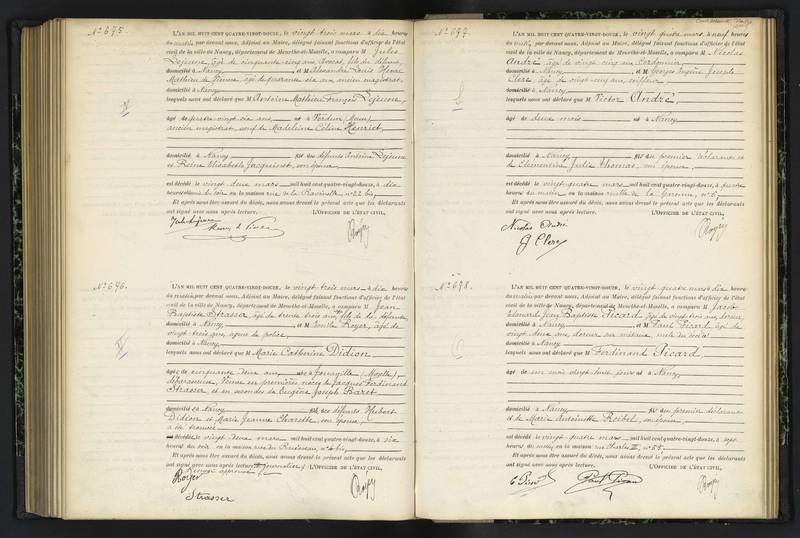 N° 675.
L'AN MIL HUIT CENT QUATRE-VINGT-DOUZE, le vingt trois mars à dix heures
du matin par devant nous, Adjoint au Maire, délégué faisant fonctions d'officier de l'état
civil de la ville de Nancy, département de Meurthe-et-Moselle, a comparu M Jules
Lejeune, âgé de cinquante cinq ans, avocat, fils du défunt,
domicilié à Nancy et M Alexandre Louis Henri
Mathieu de Vienne, âgé de quarante six ans ancien magistrat,
domicilié à Nancy
lesquels nous ont déclaré que M Antoine Mathieu François Lejeune,
âgé de quatre vingt dix ans, né à Verdun (Meuse)
ancien magistrat, veuf de Madeleine Céline Henriet,
domicilié à Nancy fils des défunts Antoine Lejeune
et Reine Elisabeth Jacquinet, son épouse,
est décédé le vingt deux mars mil huit cent quatre-vingt-douze, à dix
heures du soir en la maison rue de la Ravinelle n° 22 bis,
Et après nous être assuré du décès, nous avons dressé le présent acte que les déclarants
ont signé avec nous après lecture. L'OFFICIER DE L'ÉTAT CIVIL,
N° 676.
L'AN MIL HUIT CENT QUATRE-VINGT-DOUZE, le vingt trois mars à dix heures
du matin par devant nous, Adjoint au Maire, délégué faisant fonctions d'officier de l'état
civil de la ville de Nancy, département de Meurthe-et-Moselle, a comparu M Jean
Baptiste Strasser, âgé de trente trois ans, fils de la défunte,
domicilié à Nancy et M Emile Royer, âgé de
vingt trois ans, agent de police,
domicilié à Nancy
lesquels nous ont déclaré que M Marie Catherine Didion
âgée de cinquante deux ans, née à Jouaville (Moselle),
débarrasseuse, veuve en premières noces de Jacques Ferdinand
Strasser et en secondes de Eugène Joseph Baret
domiciliée à Nancy fille des défunts Hubert
Didion et Marie Jeanne Charotte, son épouse,
a été trouvée
décédée, le vingt deux mars mil huit cent quatre-vingt-douze, à six
heures du soir en la maison rue du Ruisseau, n° 6 bis,
Et après nous être assuré du décès, nous avons dressé le présent acte que les déclarants
ont signé avec nous après lecture. L'OFFICIER DE L'ÉTAT CIVIL,
Royer
Strasser
N° 677.
L'AN MIL HUIT CENT QUATRE-VINGT-DOUZE, le vingt quatre mars à neuf heures
du matin, par devant nous, Adjoint au Maire, délégué faisant fonctions d'officier de l'état
civil de la ville de Nancy, département de Meurthe-et-Moselle, a comparu M Nicolas
André âgé de vingt cinq ans Cordonnier,
domicilié à Nancy, et M Georges Eugène Joseph
Clerc âgé de vingt-cinq ans, coiffeur,
domicilié à Nancy
lesquels nous ont déclaré que M Victor André,
âgé de deux mois né à Nancy
domicilié à Nancy, fils du premier déclarant et
de Clémentine Julie Thomas, son épouse,
est décédé le vingt quatre mars mil huit cent quatre-vingt-douze, à quatre
heures du matin en la maison ruelle de la Garenne, n° 6,
Et après nous être assuré du décès, nous avons dressé le présent acte que les déclarants
ont signé avec nous après lecture. L'OFFICIER DE L'ÉTAT CIVIL,
Nicolas André
G Clerc
N° 678.
L'AN MIL HUIT CENT QUATRE-VINGT-DOUZE, le vingt quatre mars à dix heures
du matin par devant nous, Adjoint au Maire, délégué faisant fonctions d'officier de l'état
civil de la ville de Nancy, département de Meurthe-et-Moselle, a comparu M Jacob
Edouard Jean Baptiste Picard âgé de vingt trois ans, doreur,
domicilié à Nancy et M Paul Picard âgé de
vingt deux ans, doreur sur métaux, oncle du décédé
domicilié à Nancy
lesquels nous ont déclaré que M Ferdinand Picard,
âgé de un mois vingt huit jours né à Nancy,
domicilié à Nancy fils du premier déclarant
et de Marie Antoinette Reibel, son épouse,
est décédé le vingt quatre mars mil huit cent quatre-vingt-douze, à sept
heures du matin en la maison rue Charles III, n° 55,
Et après nous être assuré du décès, nous avons dressé le présent acte que les déclarants
ont signé avec nous après lecture. L'OFFICIER DE L'ÉTAT CIVIL,
E Picard
Paul Picard